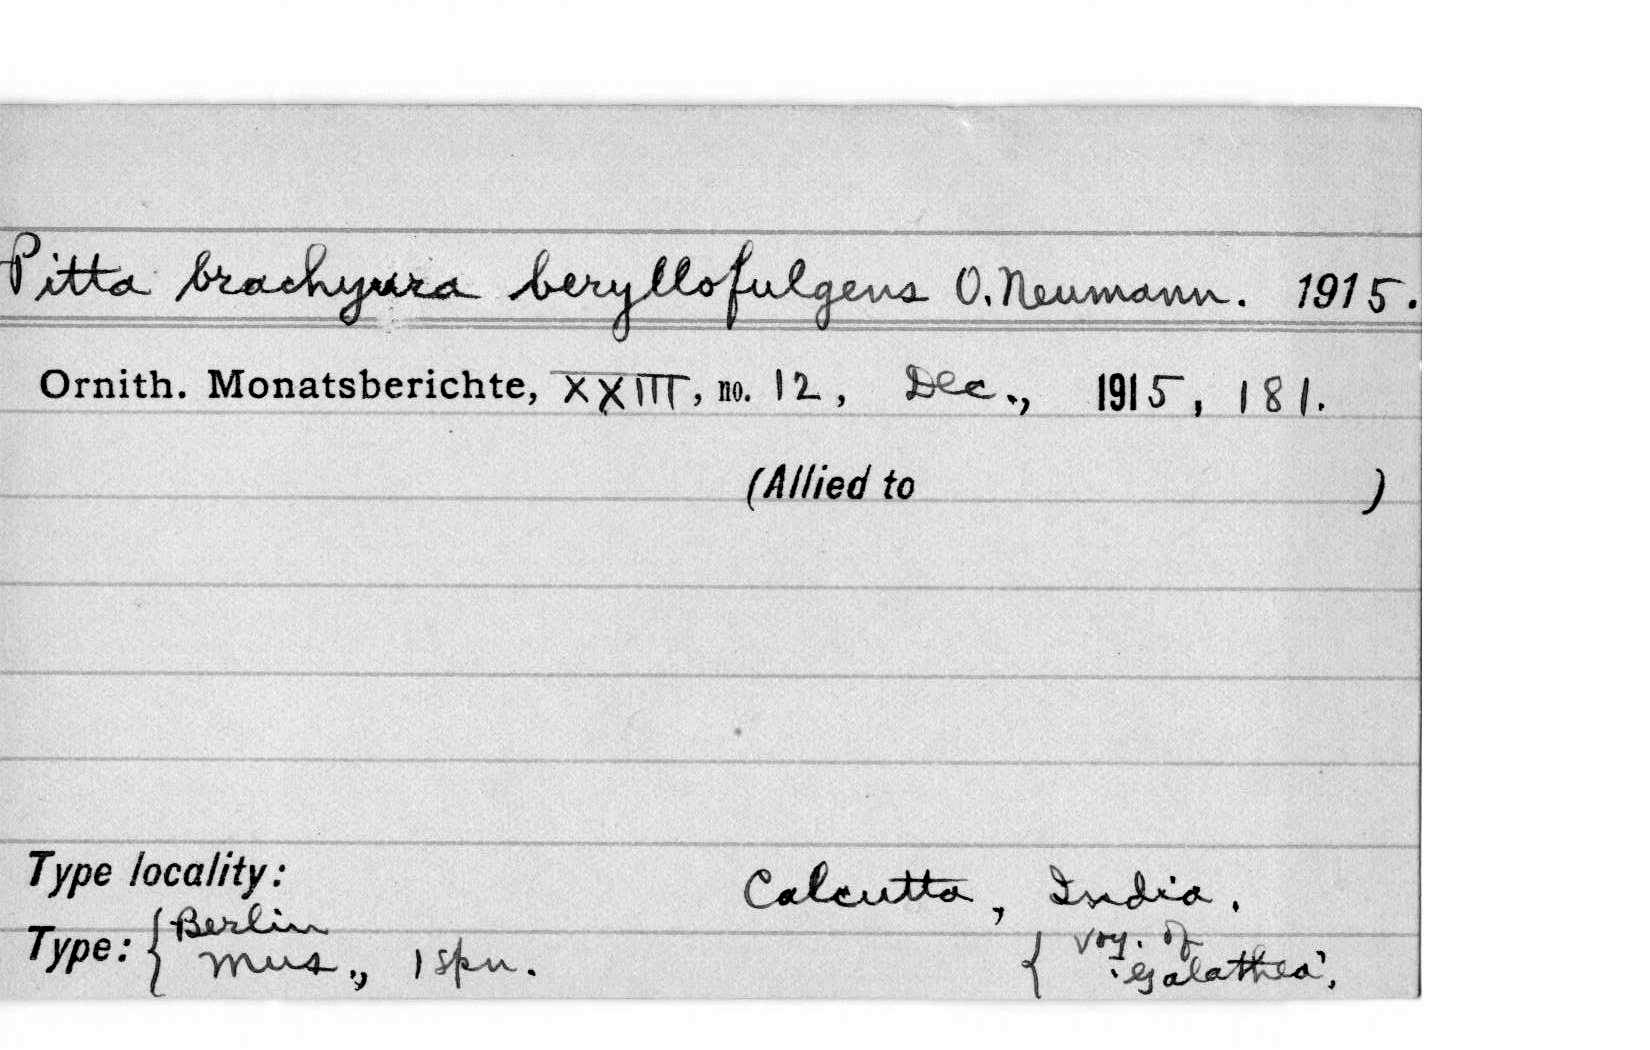 Pitta brachyura beryllofulgens O. Neumann. 1915.
Ornith. Monatsberichte, XXIII, no. 12, Dec., 1915, 181.
(Allied to )
Type locality: Calcutta, India.
Type: { Berlin Mus., 1 spn. { Voy. of 'Galathea',